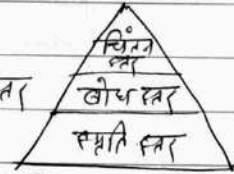 चिंतन
स्तर
बोध स्तर
स्मृति स्तर